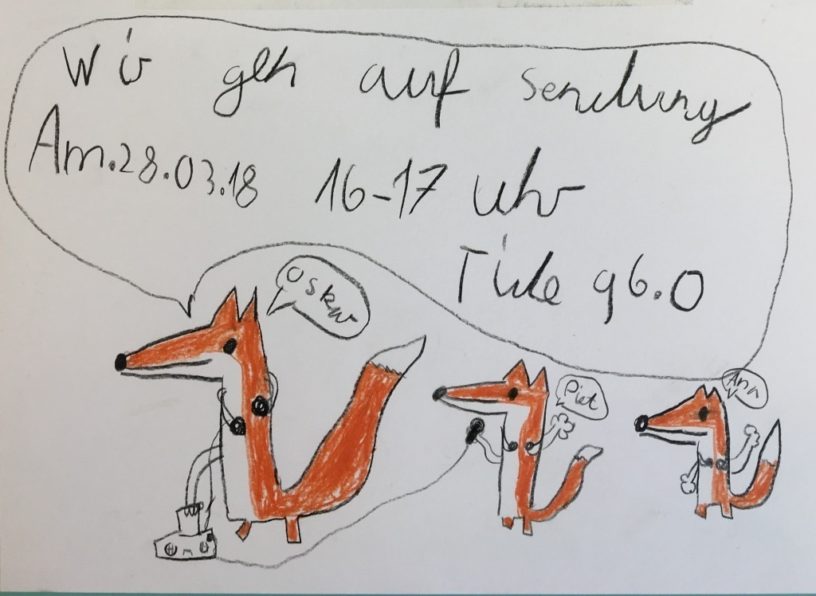 Wir geh auf sendung
Am.28.03.18 16-17 Uhr
Tide 96.0
Oskar
Piet
Ann